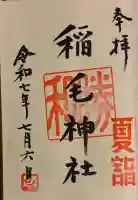 奉拝
夏詣
稲毛神社
令和七年七月六日